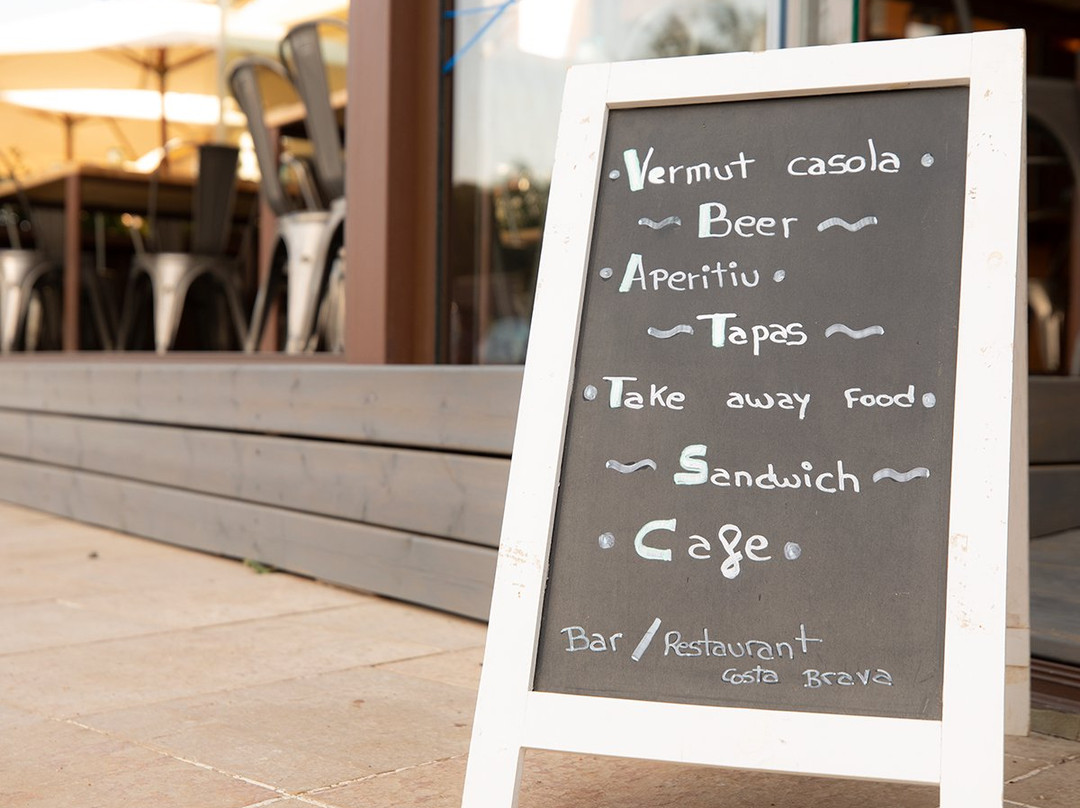 Vermut casola
Beer
Aperitiu
Tapas
Take away Food
Sandwich
Cafe
Bar / Restaurant
Costa Brava